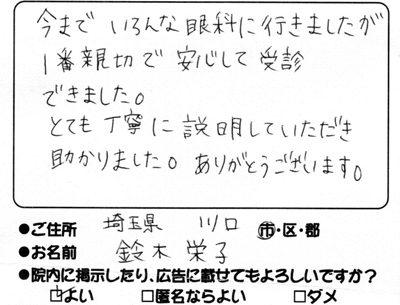 今まで いろんな眼科に行きましたが
1番親切で 安心して 受診
できました。
とても丁寧に説明していただき
助かりました。ありがとうございます。
●ご住所 埼玉県 川口 市・区・郡
●お名前 鈴木 栄子
●院内に掲示したり、広告に載せてもよろしいですか?
☑よい □匿名ならよい □ダメ